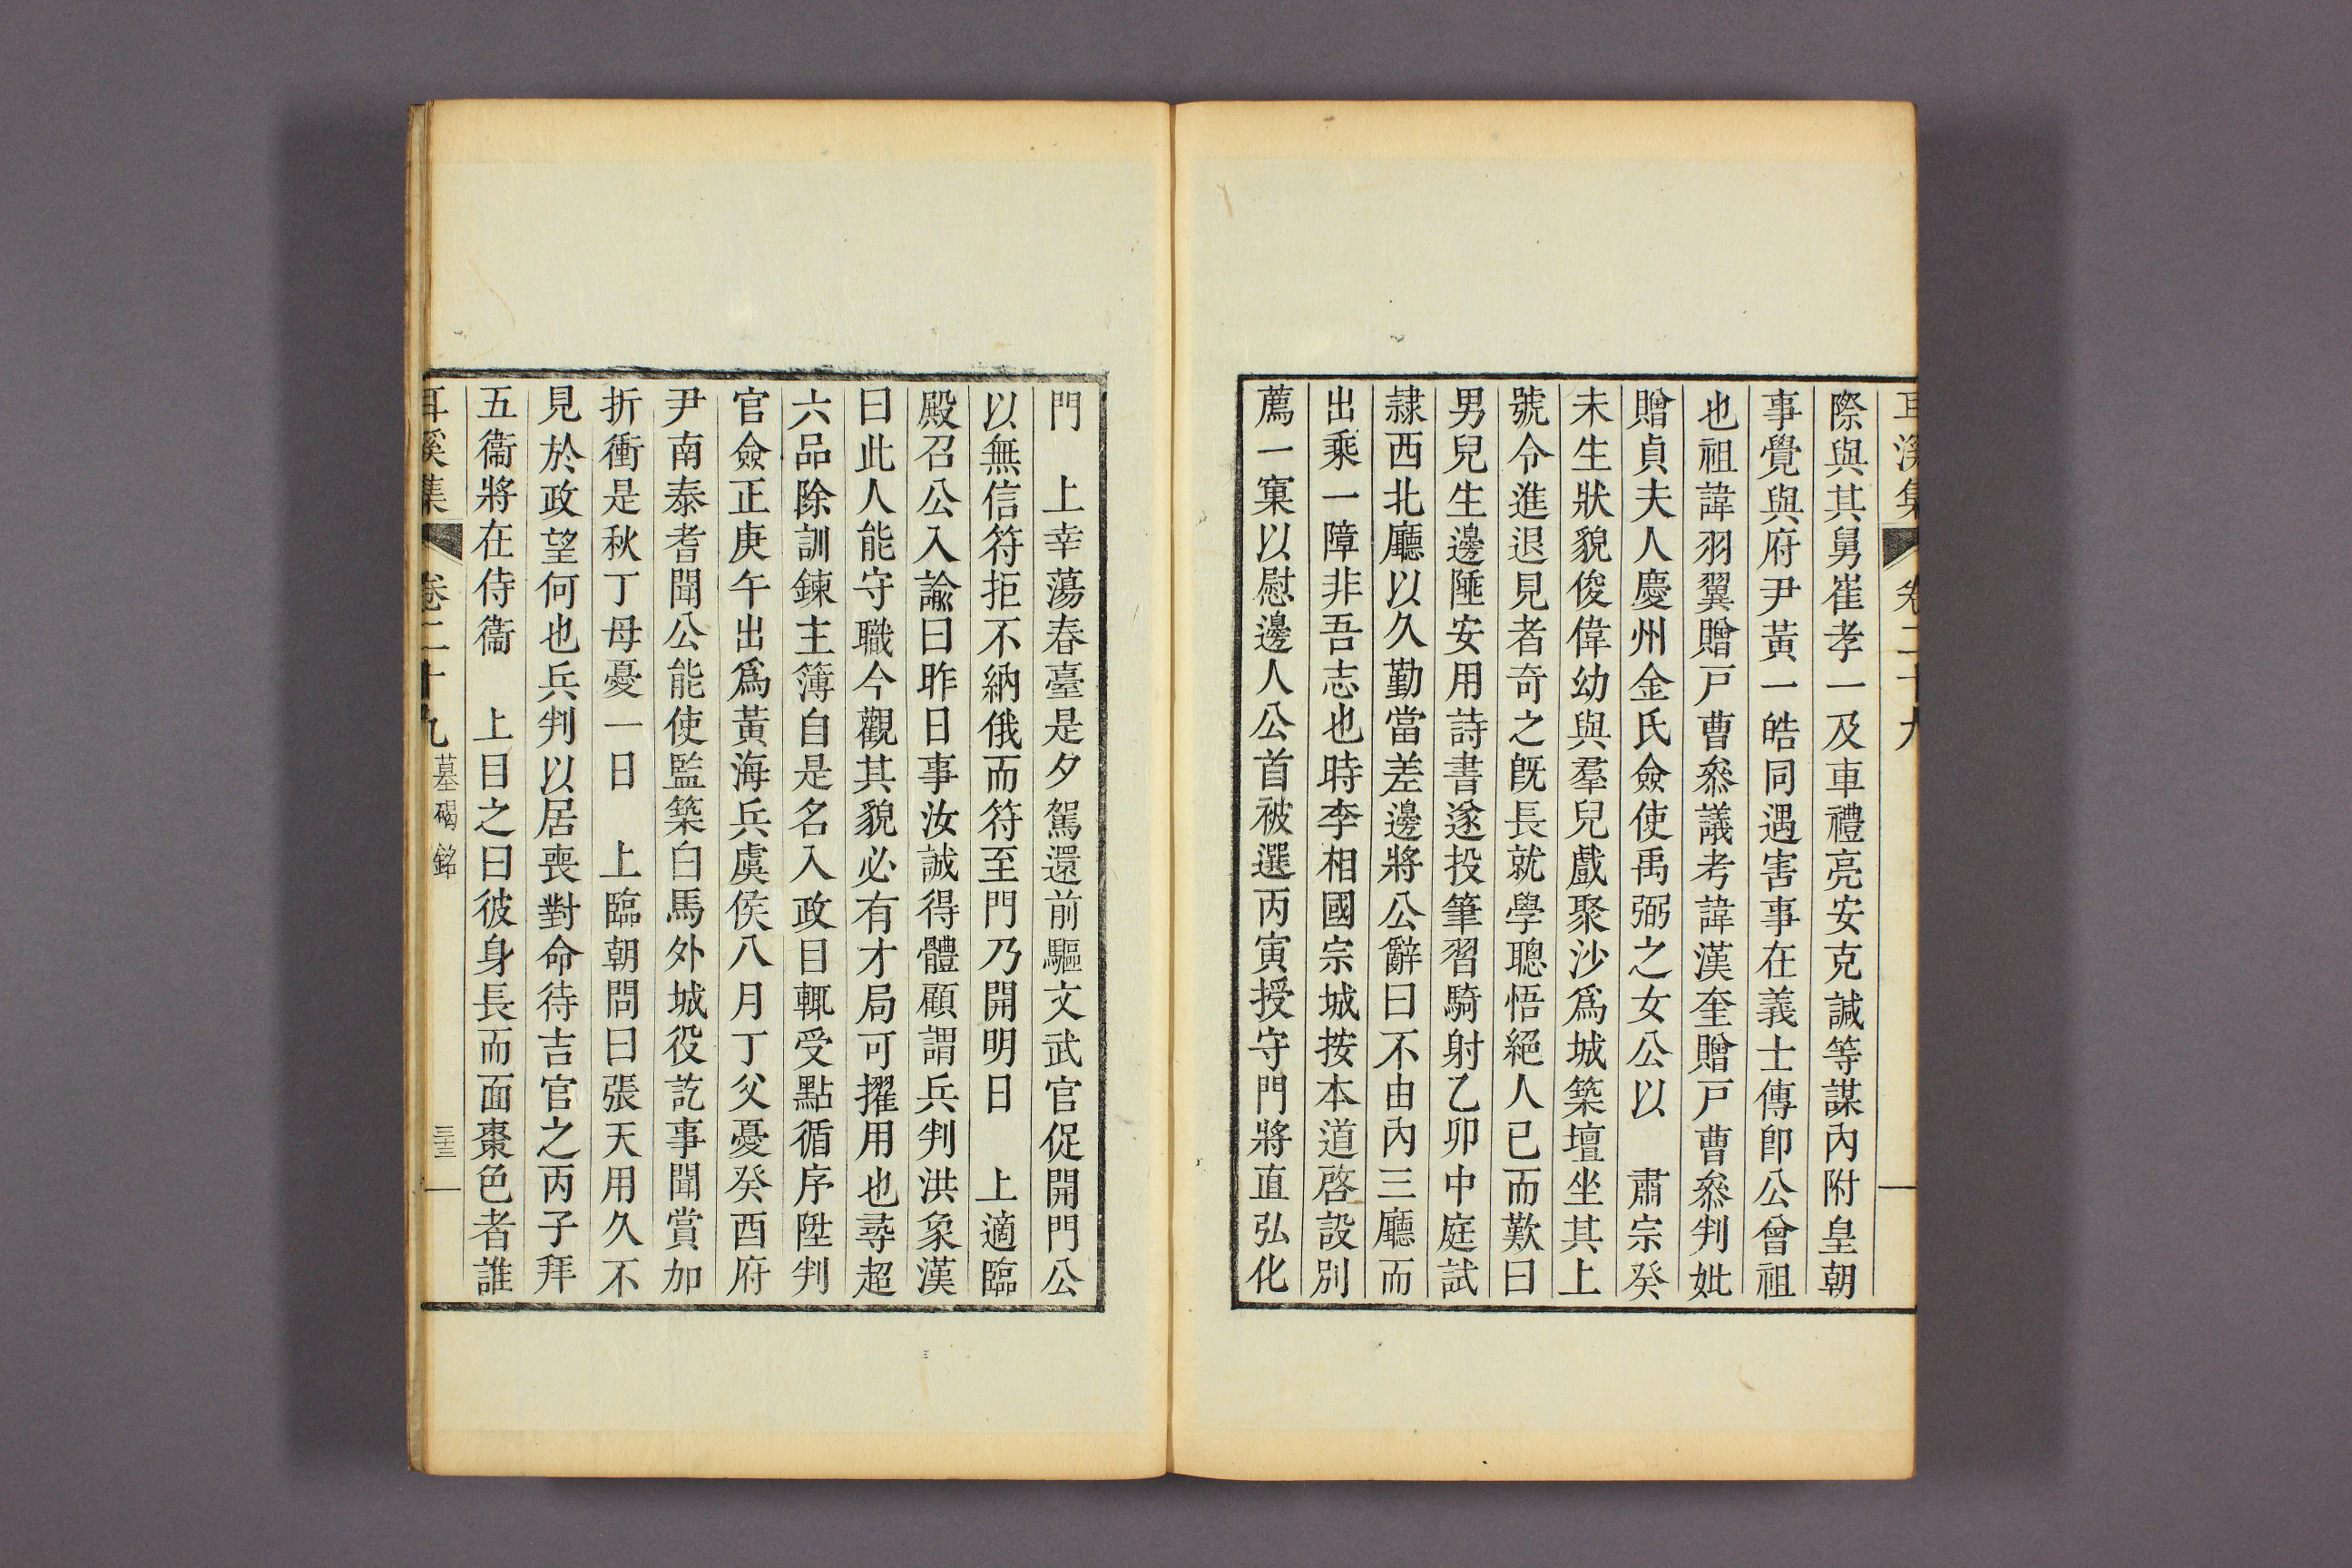 耳溪集 卷二十九
際與其舅崔孝一及車禮亮安克諴等謀內附皇朝
事覺與府尹黃一皓同遇害事在義士傳卽公曾祖
也祖諱羽翼贈戶曹叅議考諱漢奎贈戶曹叅判妣
贈貞夫人慶州金氏僉使禹弼之女公以　肅宗癸
未生狀貌俊偉幼與羣兒戲聚沙爲城築壇坐其上
號令進退見者奇之旣長就學聰悟絕人已而歎曰
男兒生邊陲安用詩書遂投筆習騎射乙卯中庭試
隷西北廳以久勤當差邊將公辭曰不由內三廳而
出乘一障非吾志也時李相國宗城按本道啓設別
薦一窠以慰邊人公首被選丙寅授守門將直弘化
門　上幸蕩春臺是夕駕還前驅文武官促開門公
以無信符拒不納俄而符至門乃開明日　上適臨
殿召公入諭曰昨日事汝誠得體顧謂兵判洪象漢
曰此人能守職今觀其貌必有才局可擢用也尋超
六品除訓鍊主簿自是名入政目輒受點循序陞判
官僉正庚午出爲黃海兵虞侯八月丁父憂癸酉府
尹南泰耆聞公能使監築白馬外城役訖事聞賞加
折衝是秋丁母憂一日　上臨朝問曰張天用久不
見於政望何也兵判以居喪對命待吉官之丙子拜
五衞將在侍衞　上目之曰彼身長而面棗色者誰
耳溪集 卷二十九 墓碣銘 三十三